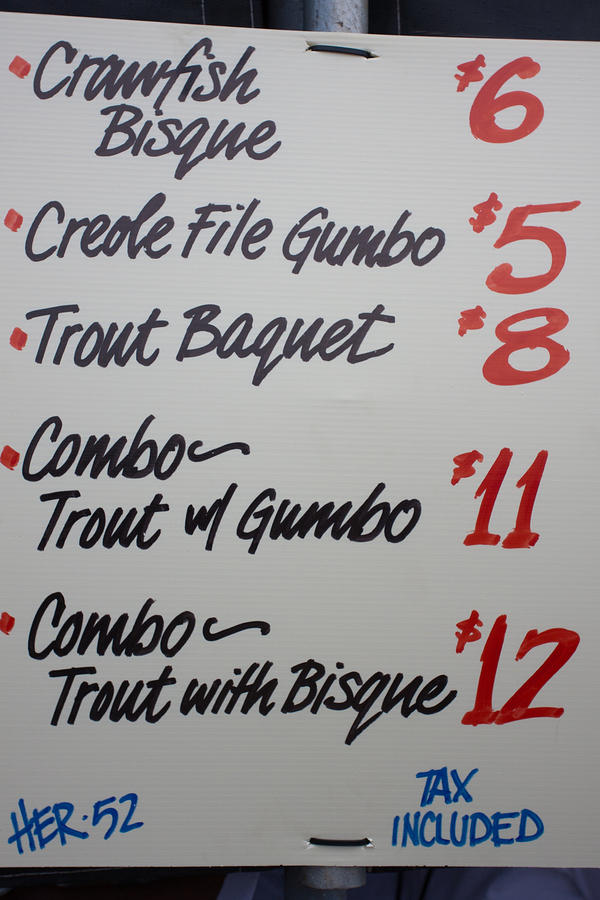 • Crawfish $6
Bisque
• Creole File Gumbo $5
• Trout Baquet $8
• Combo~
Trout w/ Gumbo $11
• Combo~
Trout with Bisque $12
HER·52
TAX
INCLUDED